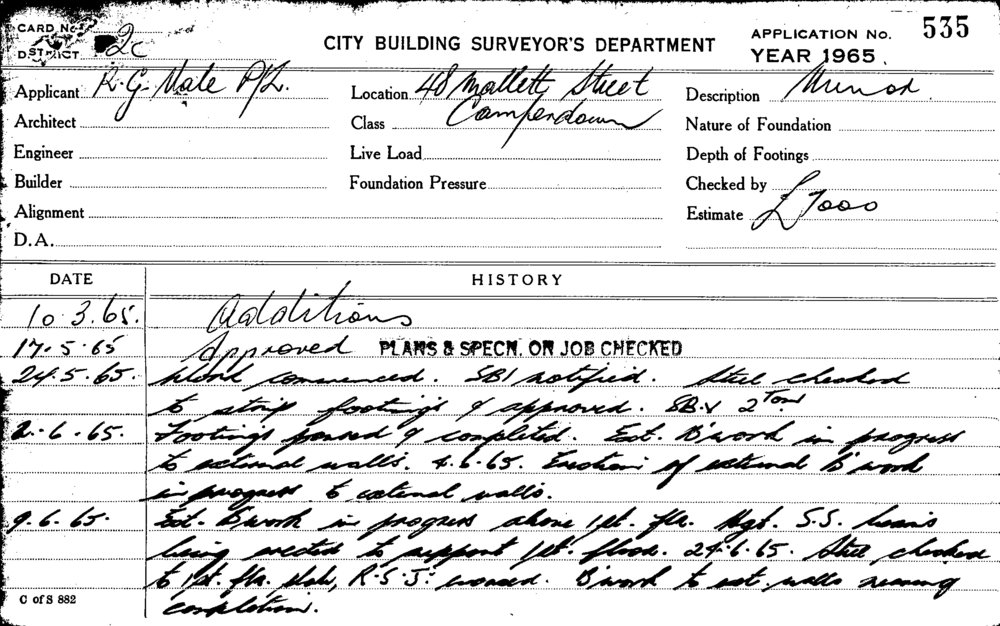 CARD No.
DISTRICT 2c
CITY BUILDING SURVEYOR'S DEPARTMENT
APPLICATION No. 535
YEAR 1965.
Applicant R. G. Vale P/L.
Location 48 Mallett Street
Camperdown
Description Minor
Architect
Class
Nature of Foundation
Engineer
Live Load
Depth of Footings
Builder
Foundation Pressure
Checked by
Alignment
Estimate £7000
D.A.
DATE HISTORY
10.3.65. Additions
17.5.65 Approved PLANS & SPECN. ON JOB CHECKED
24.5.65. Work commenced. SBI notified. Steel checked
to strip footings & approved. 2
2.6.65. Footings poured & completed. Ext. B'work in progress
to external walls. 4.6.65. Erection of external B'work
in progress to external walls.
9.6.65. Ext. B'work in progress above 1st. flr. Hgt. S.S. beams
being erected to support 1st. floor. 24.6.65. Steel checked
to 1st. flr. slab, R.S.J. encased. B'work to ext. walls nearing
completion.
C of S 882